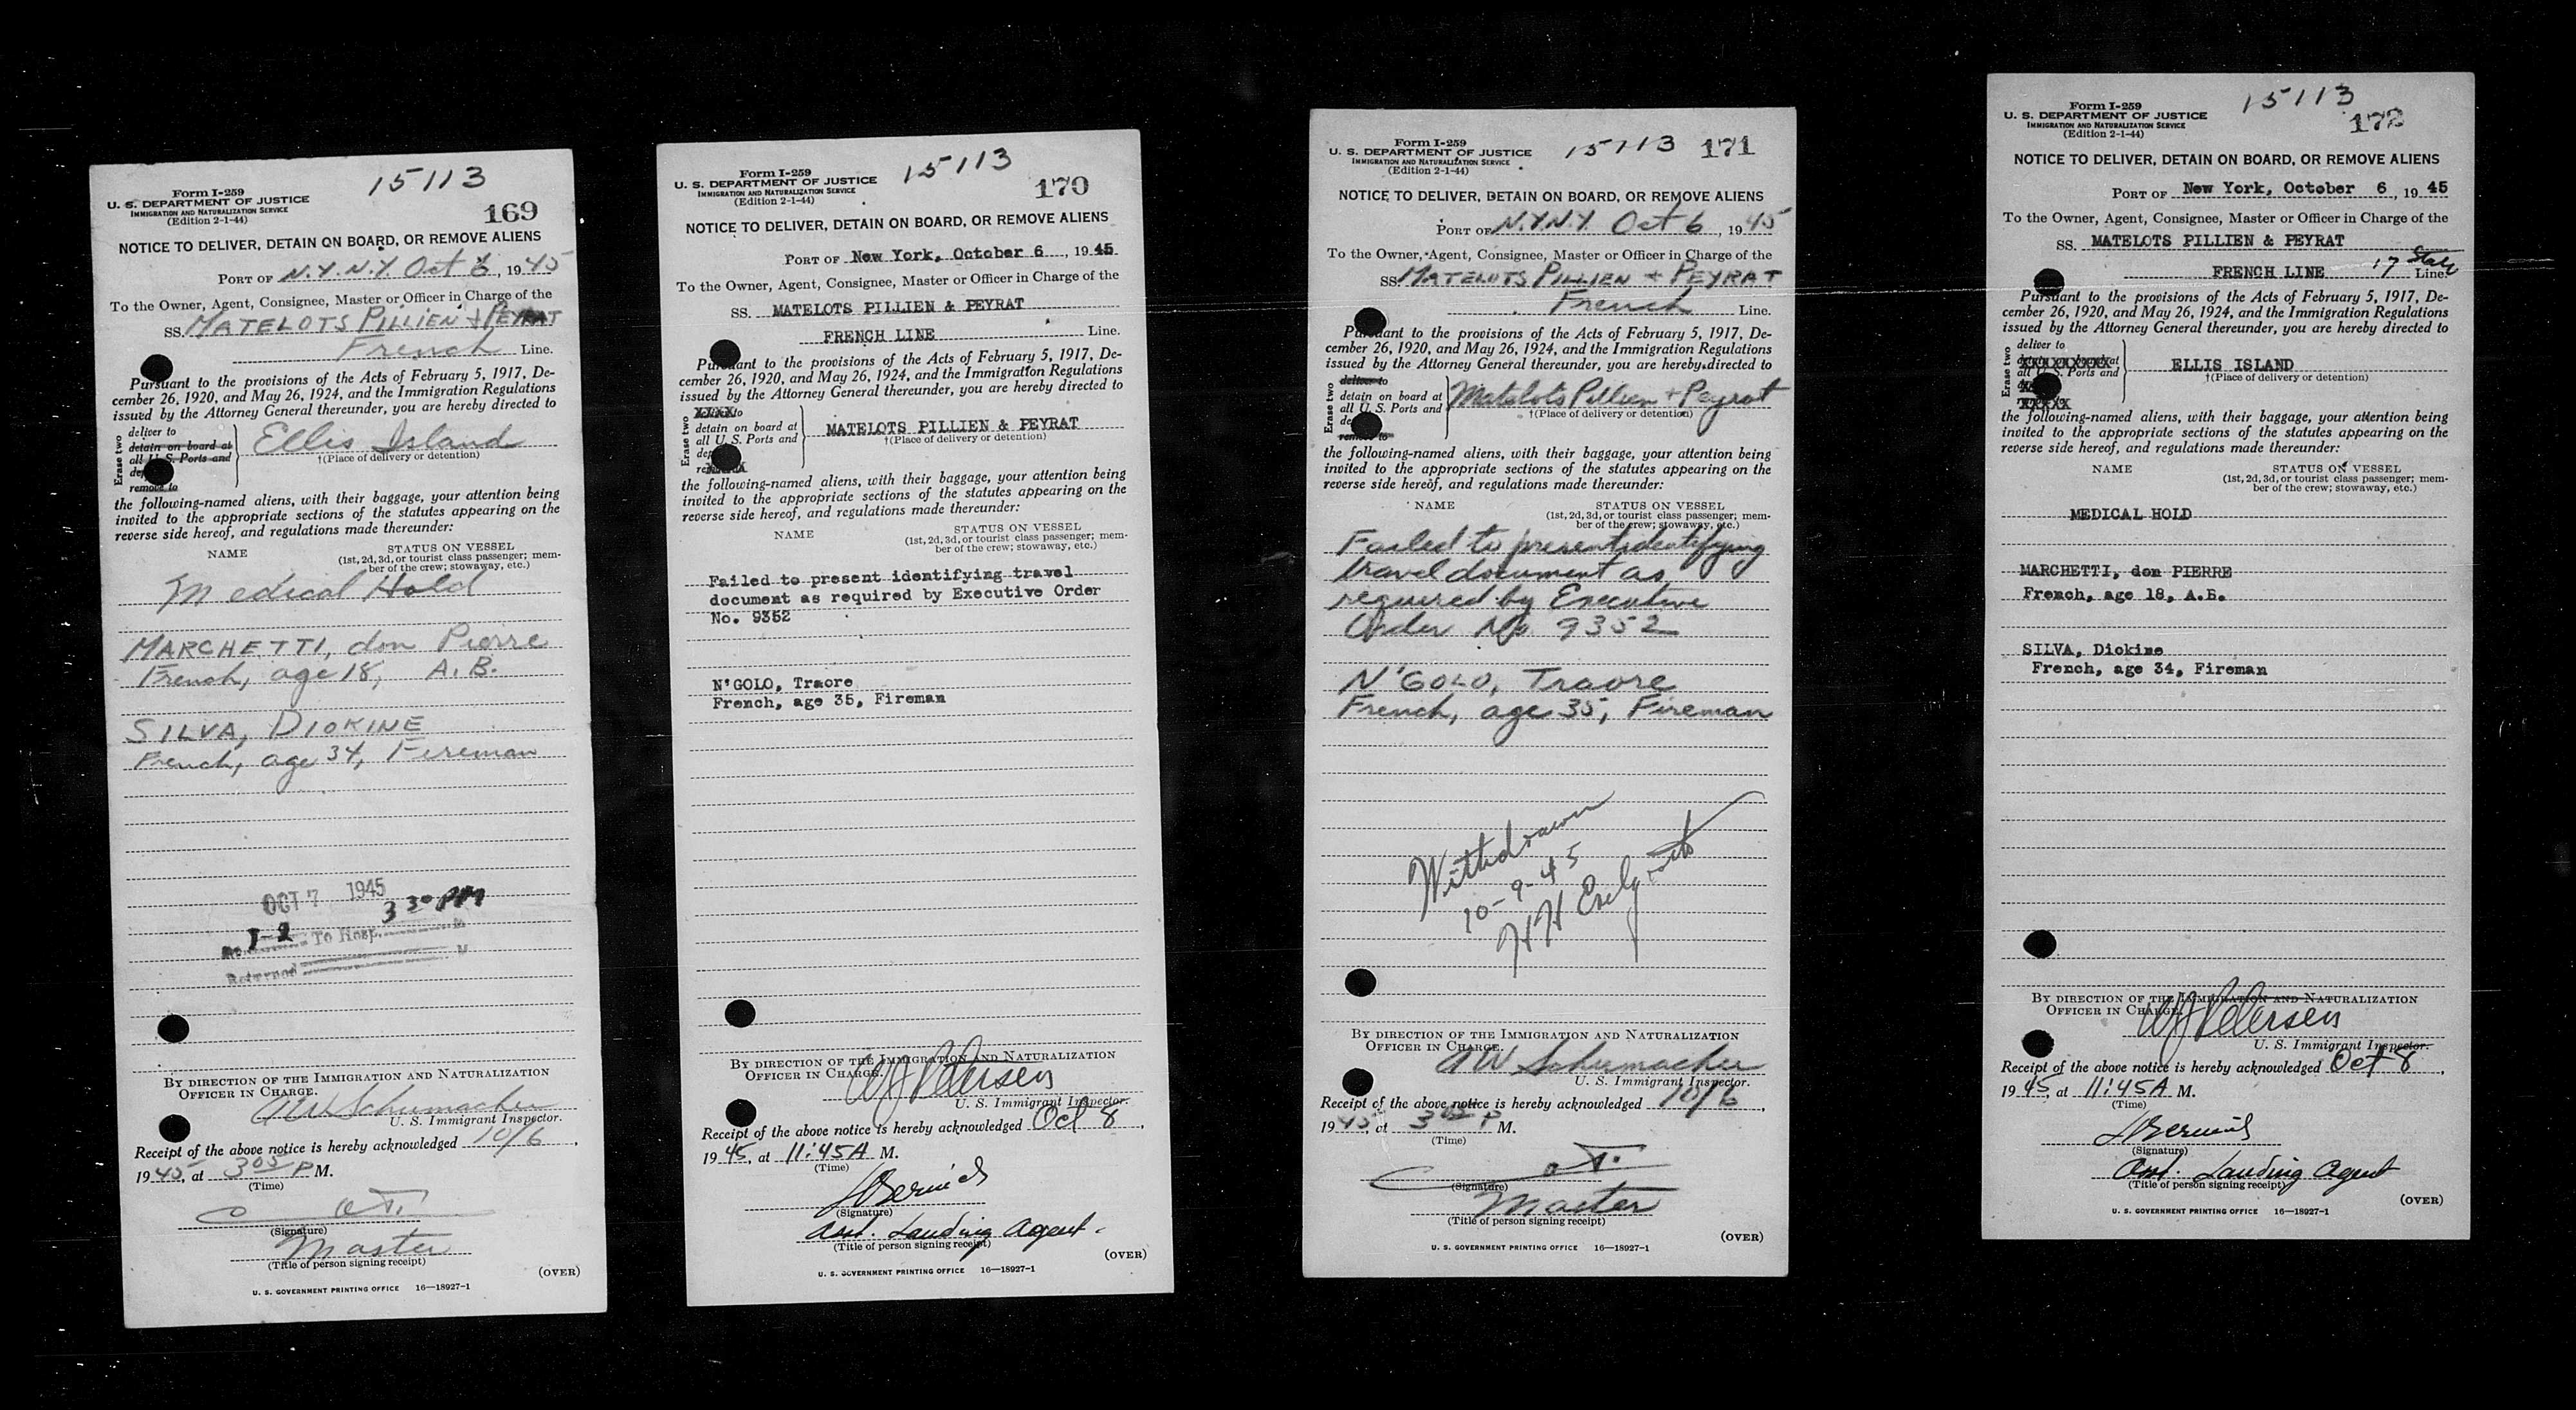 Form I-259
U. S. DEPARTMENT OF JUSTICE
IMMIGRATION AND NATURALIZATION SERVICE
(Edition 2-1-44)
15113
169
NOTICE TO DELIVER, DETAIN ON BOARD, OR REMOVE ALIENS
PORT OF N.Y.N.Y. Oct 6, 1945
To the Owner, Agent, Consignee, Master or Officer in Charge of the
SS. MATELOTS PILLIEN & PEYRAT
French Line.
Pursuant to the provisions of the Acts of February 5, 1917, De-
cember 26, 1920, and May 26, 1924, and the Immigration Regulations
issued by the Attorney General thereunder, you are hereby directed to
Erase two
deliver to
detain on board at
all U. S. Ports and
remove to
Ellis Island
†(Place of delivery or detention)
the following-named aliens, with their baggage, your attention being
invited to the appropriate sections of the statutes appearing on the
reverse side hereof, and regulations made thereunder:
NAME STATUS ON VESSEL
(1st, 2d, 3d, or tourist class passenger; mem-
ber of the crew; stowaway, etc.)
Medical Hold
MARCHETTI, don Pierre
French, age 18, A.B.
SILVA, DIOKINE
French, age 34, Fireman
OCT 7 1945
3 30 PM
To Hosp. M
Returned M
BY DIRECTION OF THE IMMIGRATION AND NATURALIZATION
OFFICER IN CHARGE.
AW Schumacher
U. S. Immigrant Inspector.
Receipt of the above notice is hereby acknowledged 10/6,
1945, at 3 05 P M.
(Time)
(Signature)
Master
(Title of person signing receipt)
(OVER)
U. S. GOVERNMENT PRINTING OFFICE 16—18927-1
Form I-259
U. S. DEPARTMENT OF JUSTICE
IMMIGRATION AND NATURALIZATION SERVICE
(Edition 2-1-44)
15113
170
NOTICE TO DELIVER, DETAIN ON BOARD, OR REMOVE ALIENS
PORT OF New York, October 6, 1945
To the Owner, Agent, Consignee, Master or Officer in Charge of the
SS. MATELOTS PILLIEN & PEYRAT
FRENCH LINE Line.
Pursuant to the provisions of the Acts of February 5, 1917, De-
cember 26, 1920, and May 26, 1924, and the Immigration Regulations
issued by the Attorney General thereunder, you are hereby directed to
Erase two
detain on board at
all U. S. Ports and
MATELOTS PILLIEN & PEYRAT
†(Place of delivery or detention)
the following-named aliens, with their baggage, your attention being
invited to the appropriate sections of the statutes appearing on the
reverse side hereof, and regulations made thereunder:
NAME STATUS ON VESSEL
(1st, 2d, 3d, or tourist class passenger; mem-
ber of the crew; stowaway, etc.)
Failed to present identifying travel
document as required by Executive Order
No. 9352
N'GOLO, Traore
French, age 35, Fireman
BY DIRECTION OF THE IMMIGRATION AND NATURALIZATION
OFFICER IN CHARGE.
Petersen
U. S. Immigrant Inspector.
Receipt of the above notice is hereby acknowledged Oct 8,
1945, at 11:45A M.
(Time)
(Signature)
Asst. Landing Agent.
(Title of person signing receipt)
(OVER)
U. S. GOVERNMENT PRINTING OFFICE 16—18927-1
Form I-259
U. S. DEPARTMENT OF JUSTICE
IMMIGRATION AND NATURALIZATION SERVICE
(Edition 2-1-44)
15113
171
NOTICE TO DELIVER, DETAIN ON BOARD, OR REMOVE ALIENS
PORT OF N.Y.N.Y. Oct 6, 1945
To the Owner, Agent, Consignee, Master or Officer in Charge of the
SS MATELOTS PILLIEN & PEYRAT
French Line.
Pursuant to the provisions of the Acts of February 5, 1917, De-
cember 26, 1920, and May 26, 1924, and the Immigration Regulations
issued by the Attorney General thereunder, you are hereby directed to
Erase two
deliver to
detain on board at
all U. S. Ports and
remove to
Matelots Pillien & Peyrat
†(Place of delivery or detention)
the following-named aliens, with their baggage, your attention being
invited to the appropriate sections of the statutes appearing on the
reverse side hereof, and regulations made thereunder:
NAME STATUS ON VESSEL
(1st, 2d, 3d, or tourist class passenger; mem-
ber of the crew; stowaway, etc.)
Failed to present identifying
travel document as
required by Executive
Order No. 9352
N'GOLO, Traore
French, age 35, Fireman
Withdrawn
10-9-45
BY DIRECTION OF THE IMMIGRATION AND NATURALIZATION
OFFICER IN CHARGE.
AW Schumacher
U. S. Immigrant Inspector.
Receipt of the above notice is hereby acknowledged 10/6,
1945, at 3 05 P M.
(Time)
(Signature)
Master
(Title of person signing receipt)
(OVER)
U. S. GOVERNMENT PRINTING OFFICE 16—18927-1
Form I-259
U. S. DEPARTMENT OF JUSTICE
IMMIGRATION AND NATURALIZATION SERVICE
(Edition 2-1-44)
15113
172
NOTICE TO DELIVER, DETAIN ON BOARD, OR REMOVE ALIENS
PORT OF New York, October 6, 1945
To the Owner, Agent, Consignee, Master or Officer in Charge of the
SS. MATELOTS PILLIEN & PEYRAT
FRENCH LINE 17 State Line.
Pursuant to the provisions of the Acts of February 5, 1917, De-
cember 26, 1920, and May 26, 1924, and the Immigration Regulations
issued by the Attorney General thereunder, you are hereby directed to
Erase two
deliver to
all U. S. Ports and
ELLIS ISLAND
†(Place of delivery or detention)
the following-named aliens, with their baggage, your attention being
invited to the appropriate sections of the statutes appearing on the
reverse side hereof, and regulations made thereunder:
NAME STATUS ON VESSEL
(1st, 2d, 3d, or tourist class passenger; mem-
ber of the crew; stowaway, etc.)
MEDICAL HOLD
MARCHETTI, don PIERRE
French, age 18, A.B.
SILVA, Diokine
French, age 34, Fireman
BY DIRECTION OF THE IMMIGRATION AND NATURALIZATION
OFFICER IN CHARGE.
Petersen
U. S. Immigrant Inspector.
Receipt of the above notice is hereby acknowledged Oct 8,
1945, at 11:45A M.
(Time)
(Signature)
Asst. Landing Agent
(Title of person signing receipt)
(OVER)
U. S. GOVERNMENT PRINTING OFFICE 16—18927-1